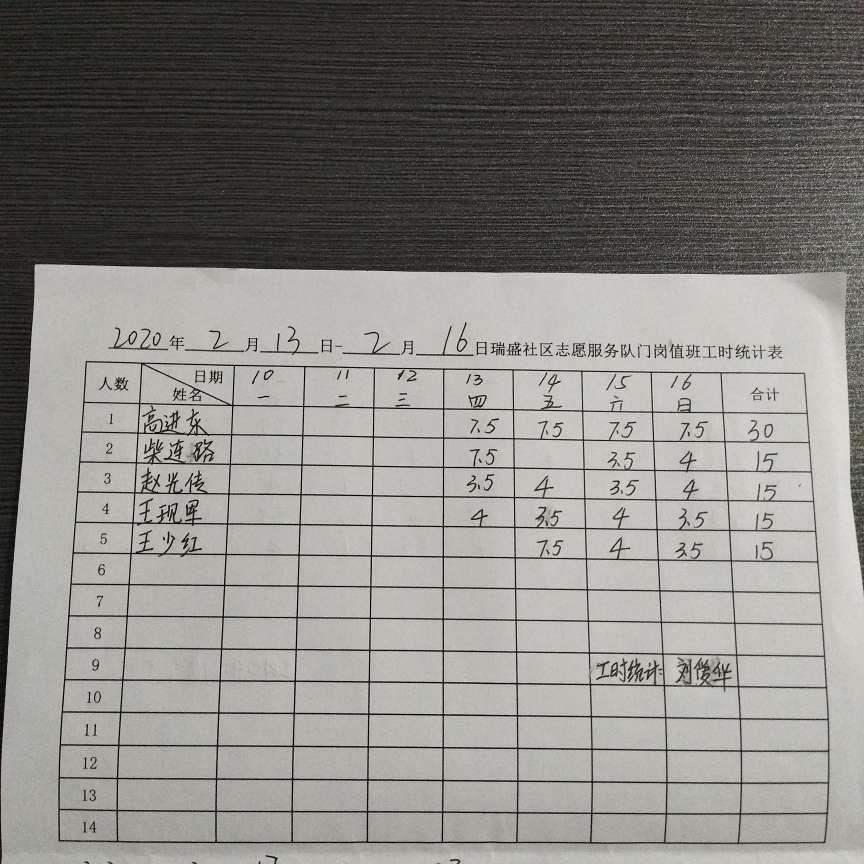 2020年 2 月 13 日- 2 月 16 日瑞盛社区志愿服务队门岗值班工时统计表
人数 日期 姓名 10 11 12 13 14 15 16 合计
一 二 三 四 五 六 日
1 高进东 7.5 7.5 7.5 7.5 30
2 柴连路 7.5 3.5 4 15
3 赵光传 3.5 4 3.5 4 15
4 王现军 4 3.5 4 3.5 15
5 王少红 7.5 4 3.5 15
6
7
8
9 工时统计: 刘俊华
10
11
12
13
14